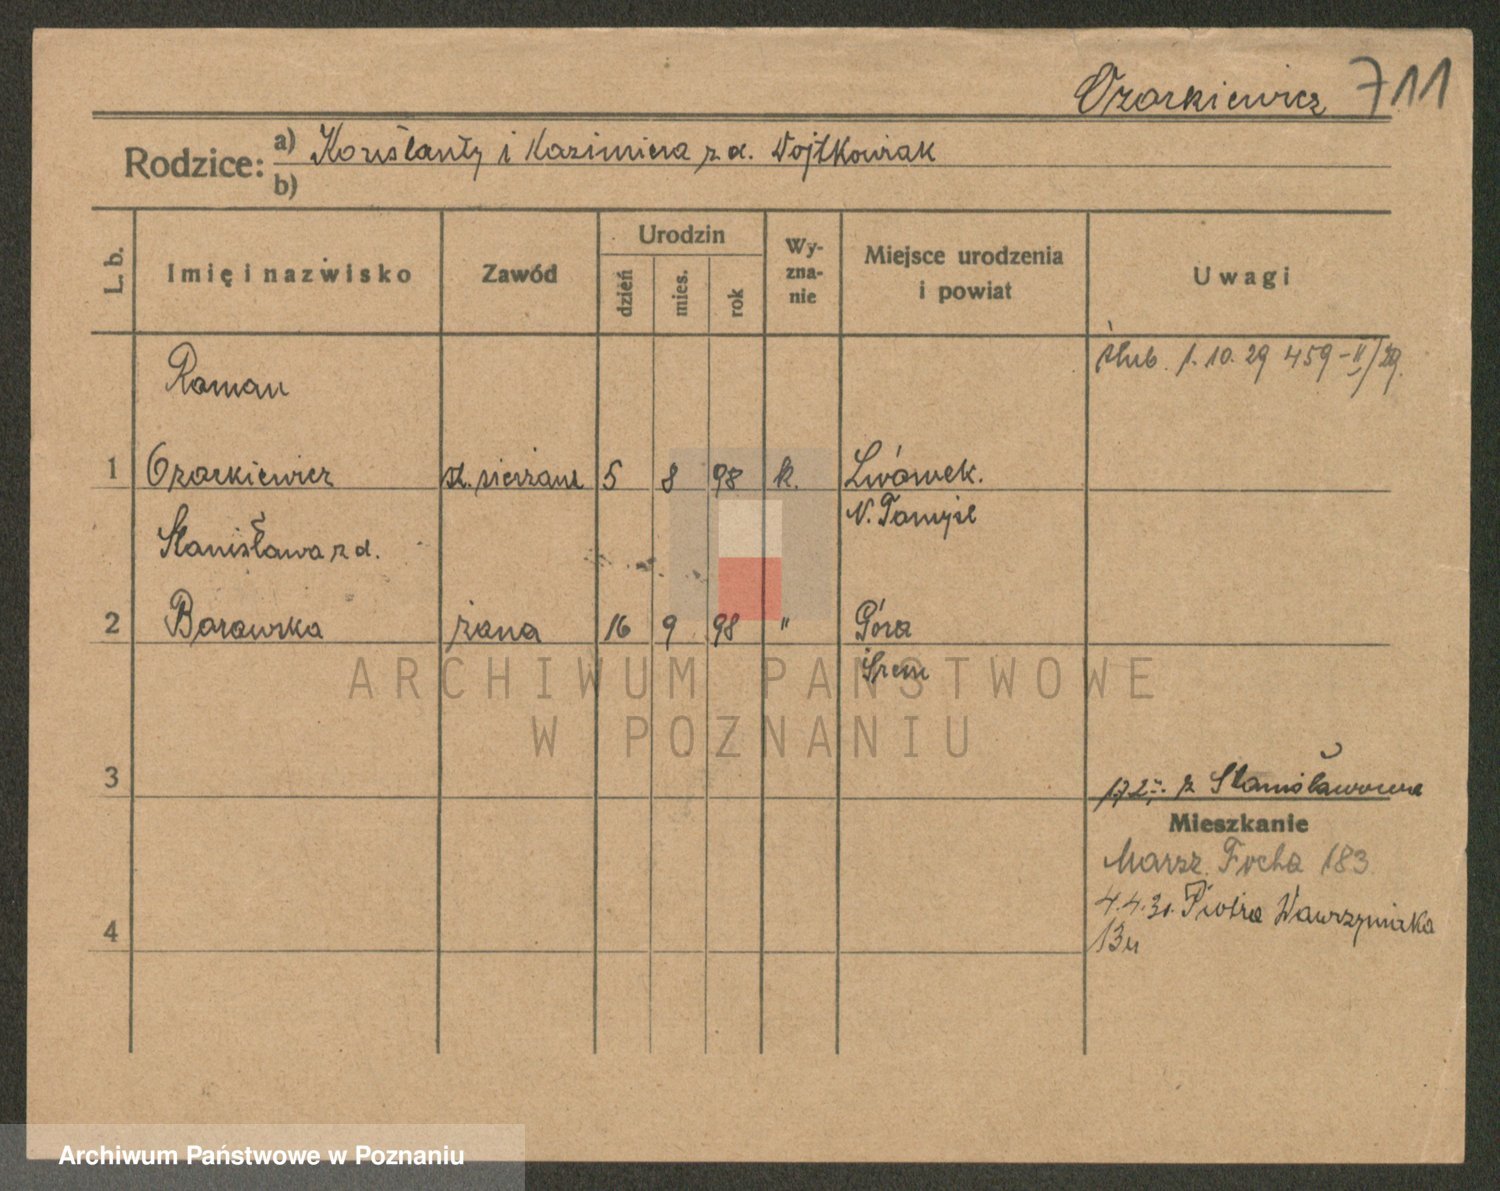 Ozorkiewicz 711
Rodzice: a) Konstanty i Kazimiera z d. Wojtkowiak
b)
L. b.
Imię i nazwisko
Zawód
Urodzin
dzień
mies.
rok
Wy-
zna-
nie
Miejsce urodzenia
i powiat
Uwagi
Roman
ślub. 1. 10. 29 459-II/29.
1 Ozorkiewicz st. sierżant 5 8 98 k. Lwówek.
N. Tomyśl
Stanisława z d.
2 Borowska żona 16 9 98 " Góra
Śrem
ARCHIWUM PAŃSTWOWE
W POZNANIU
3
z Stanisławowa
Mieszkanie
Marsz. Focha 183
4
4.4.31. Piotra Wawrzyniaka
13
Archiwum Państwowe w Poznaniu